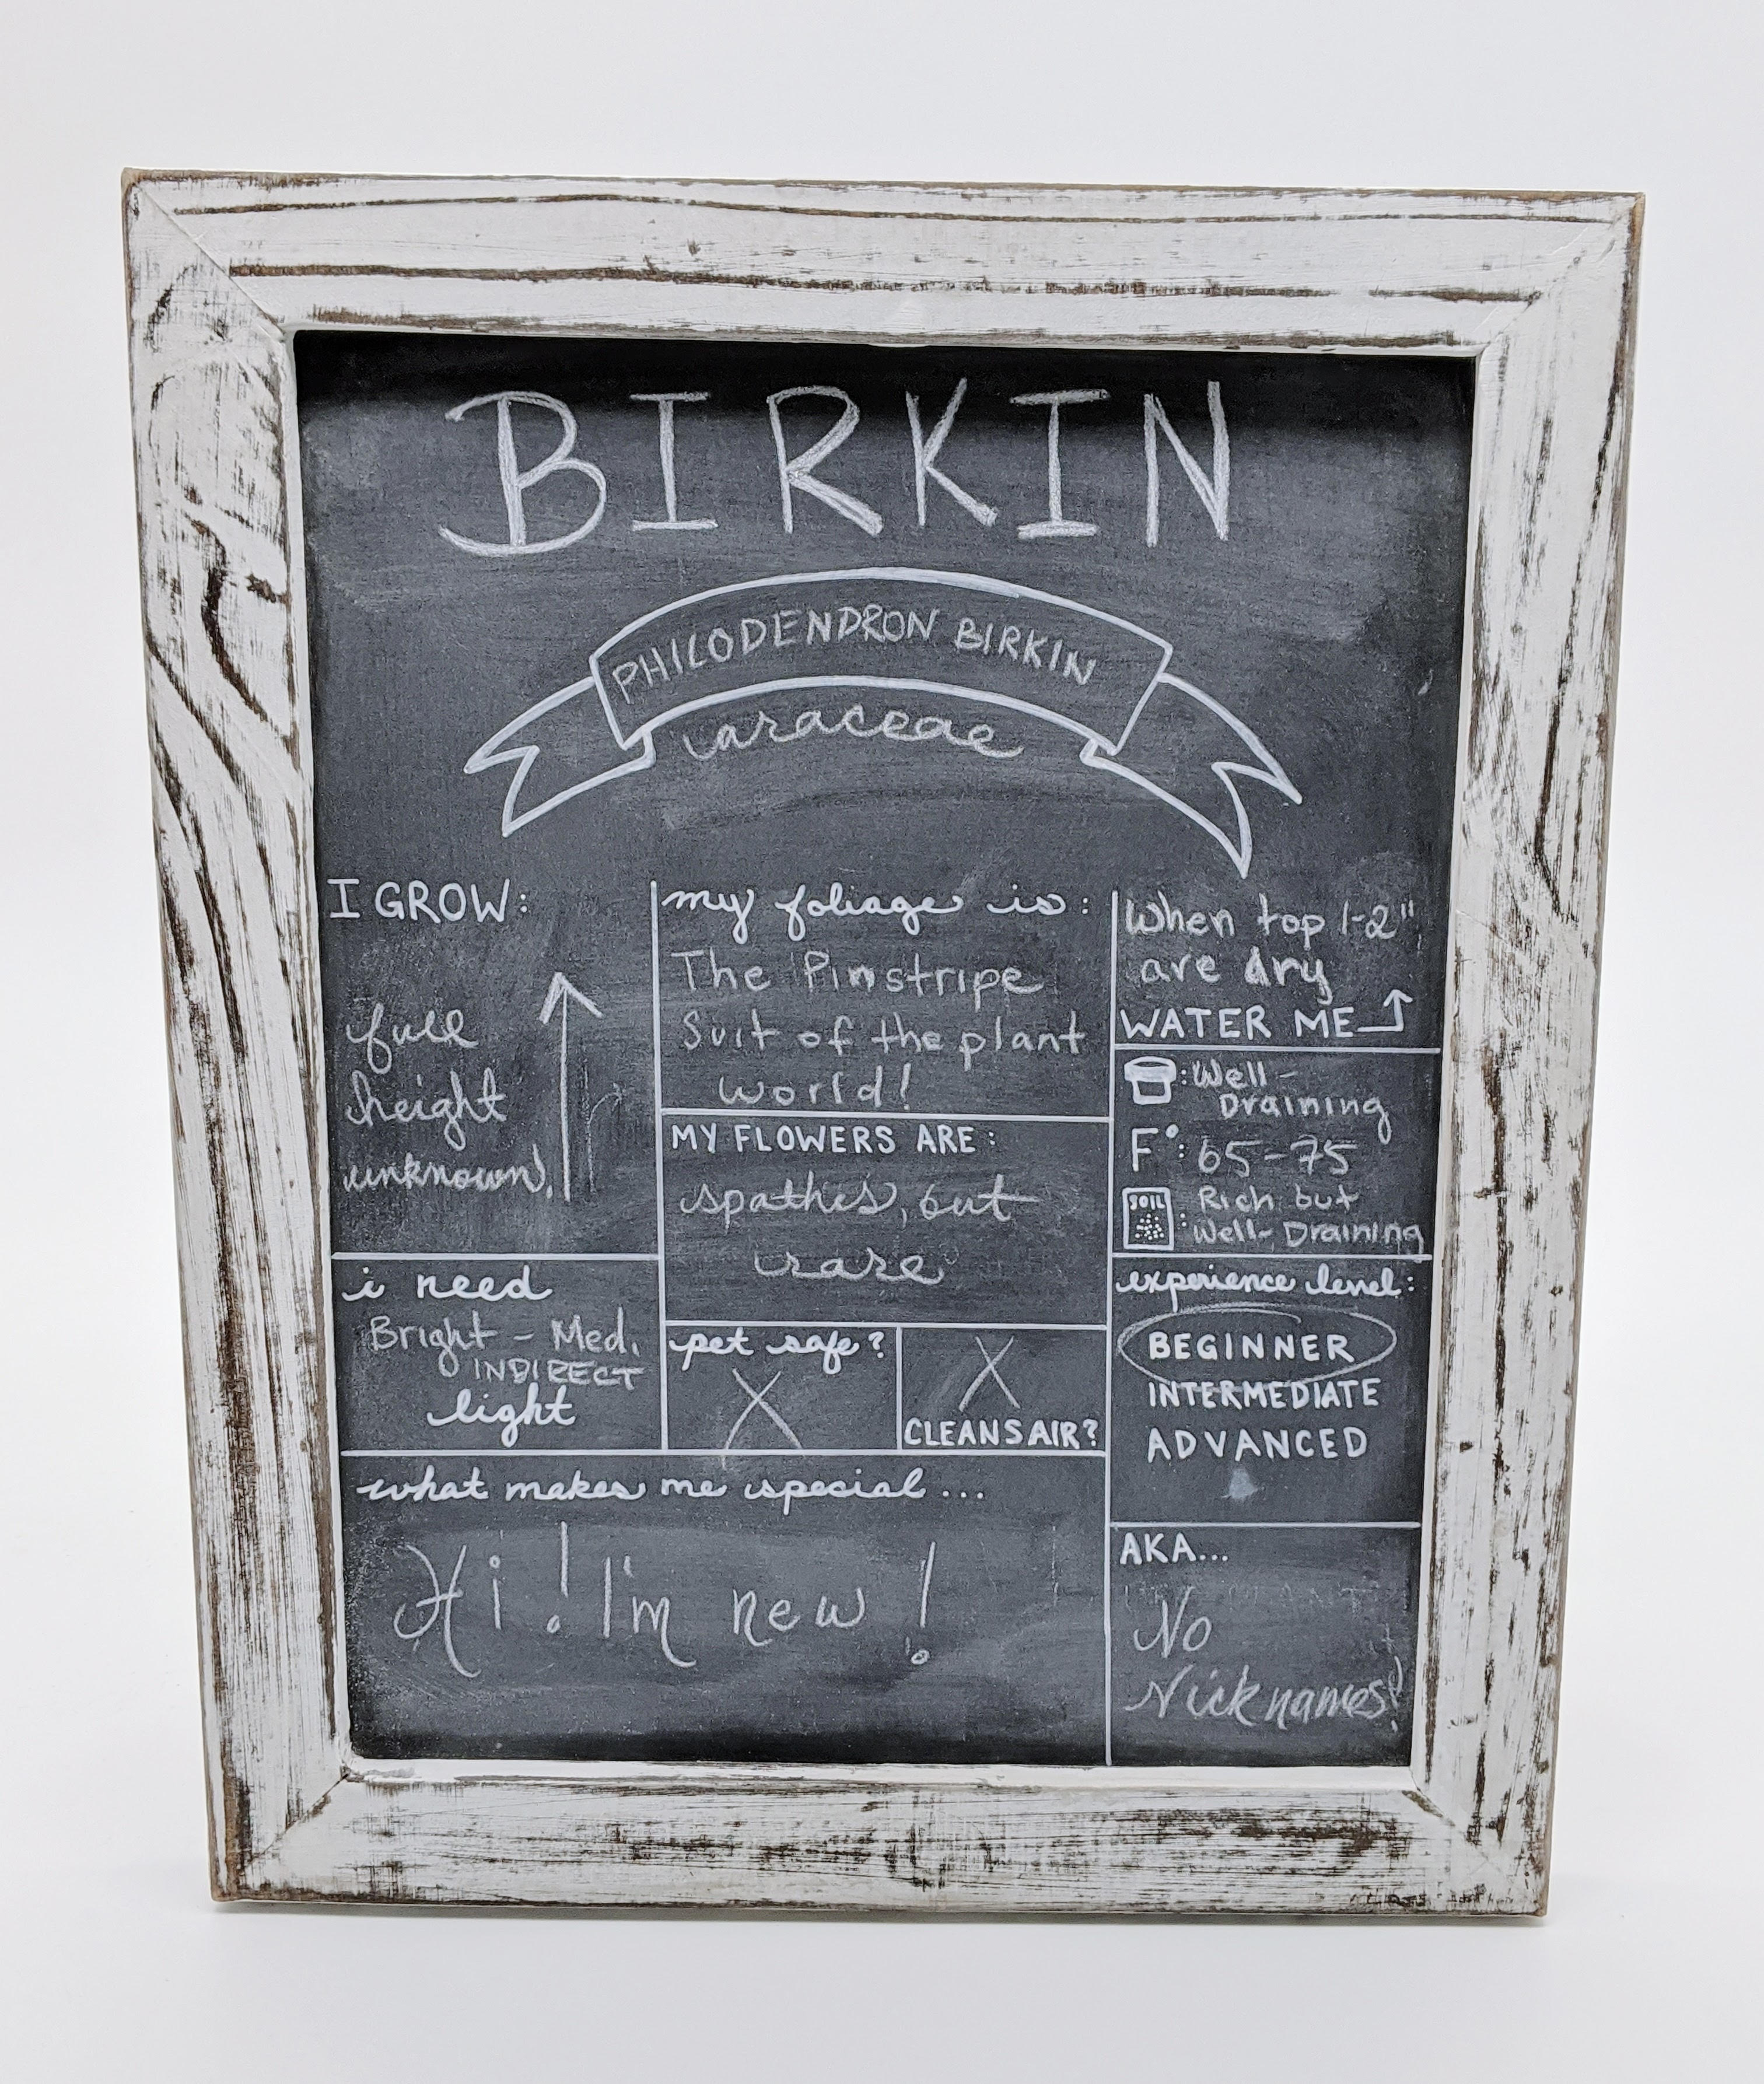 BIRKIN
PHILODENDRON BIRKIN
araceae
I GROW:
full
height
unknown.
i need
Bright - Med.
INDIRECT
light
my foliage is:
The Pinstripe
Suit of the plant
world!
MY FLOWERS ARE:
spathes, but
rare
pet safe?
X
X
CLEANS AIR?
what makes me special...
Hi! I'm new!
When top 1-2"
are dry
WATER ME
: Well-
Draining
F°: 65-75
SOIL
: Rich but
Well-Draining
experience level:
BEGINNER
INTERMEDIATE
ADVANCED
AKA...
No
Nicknames!